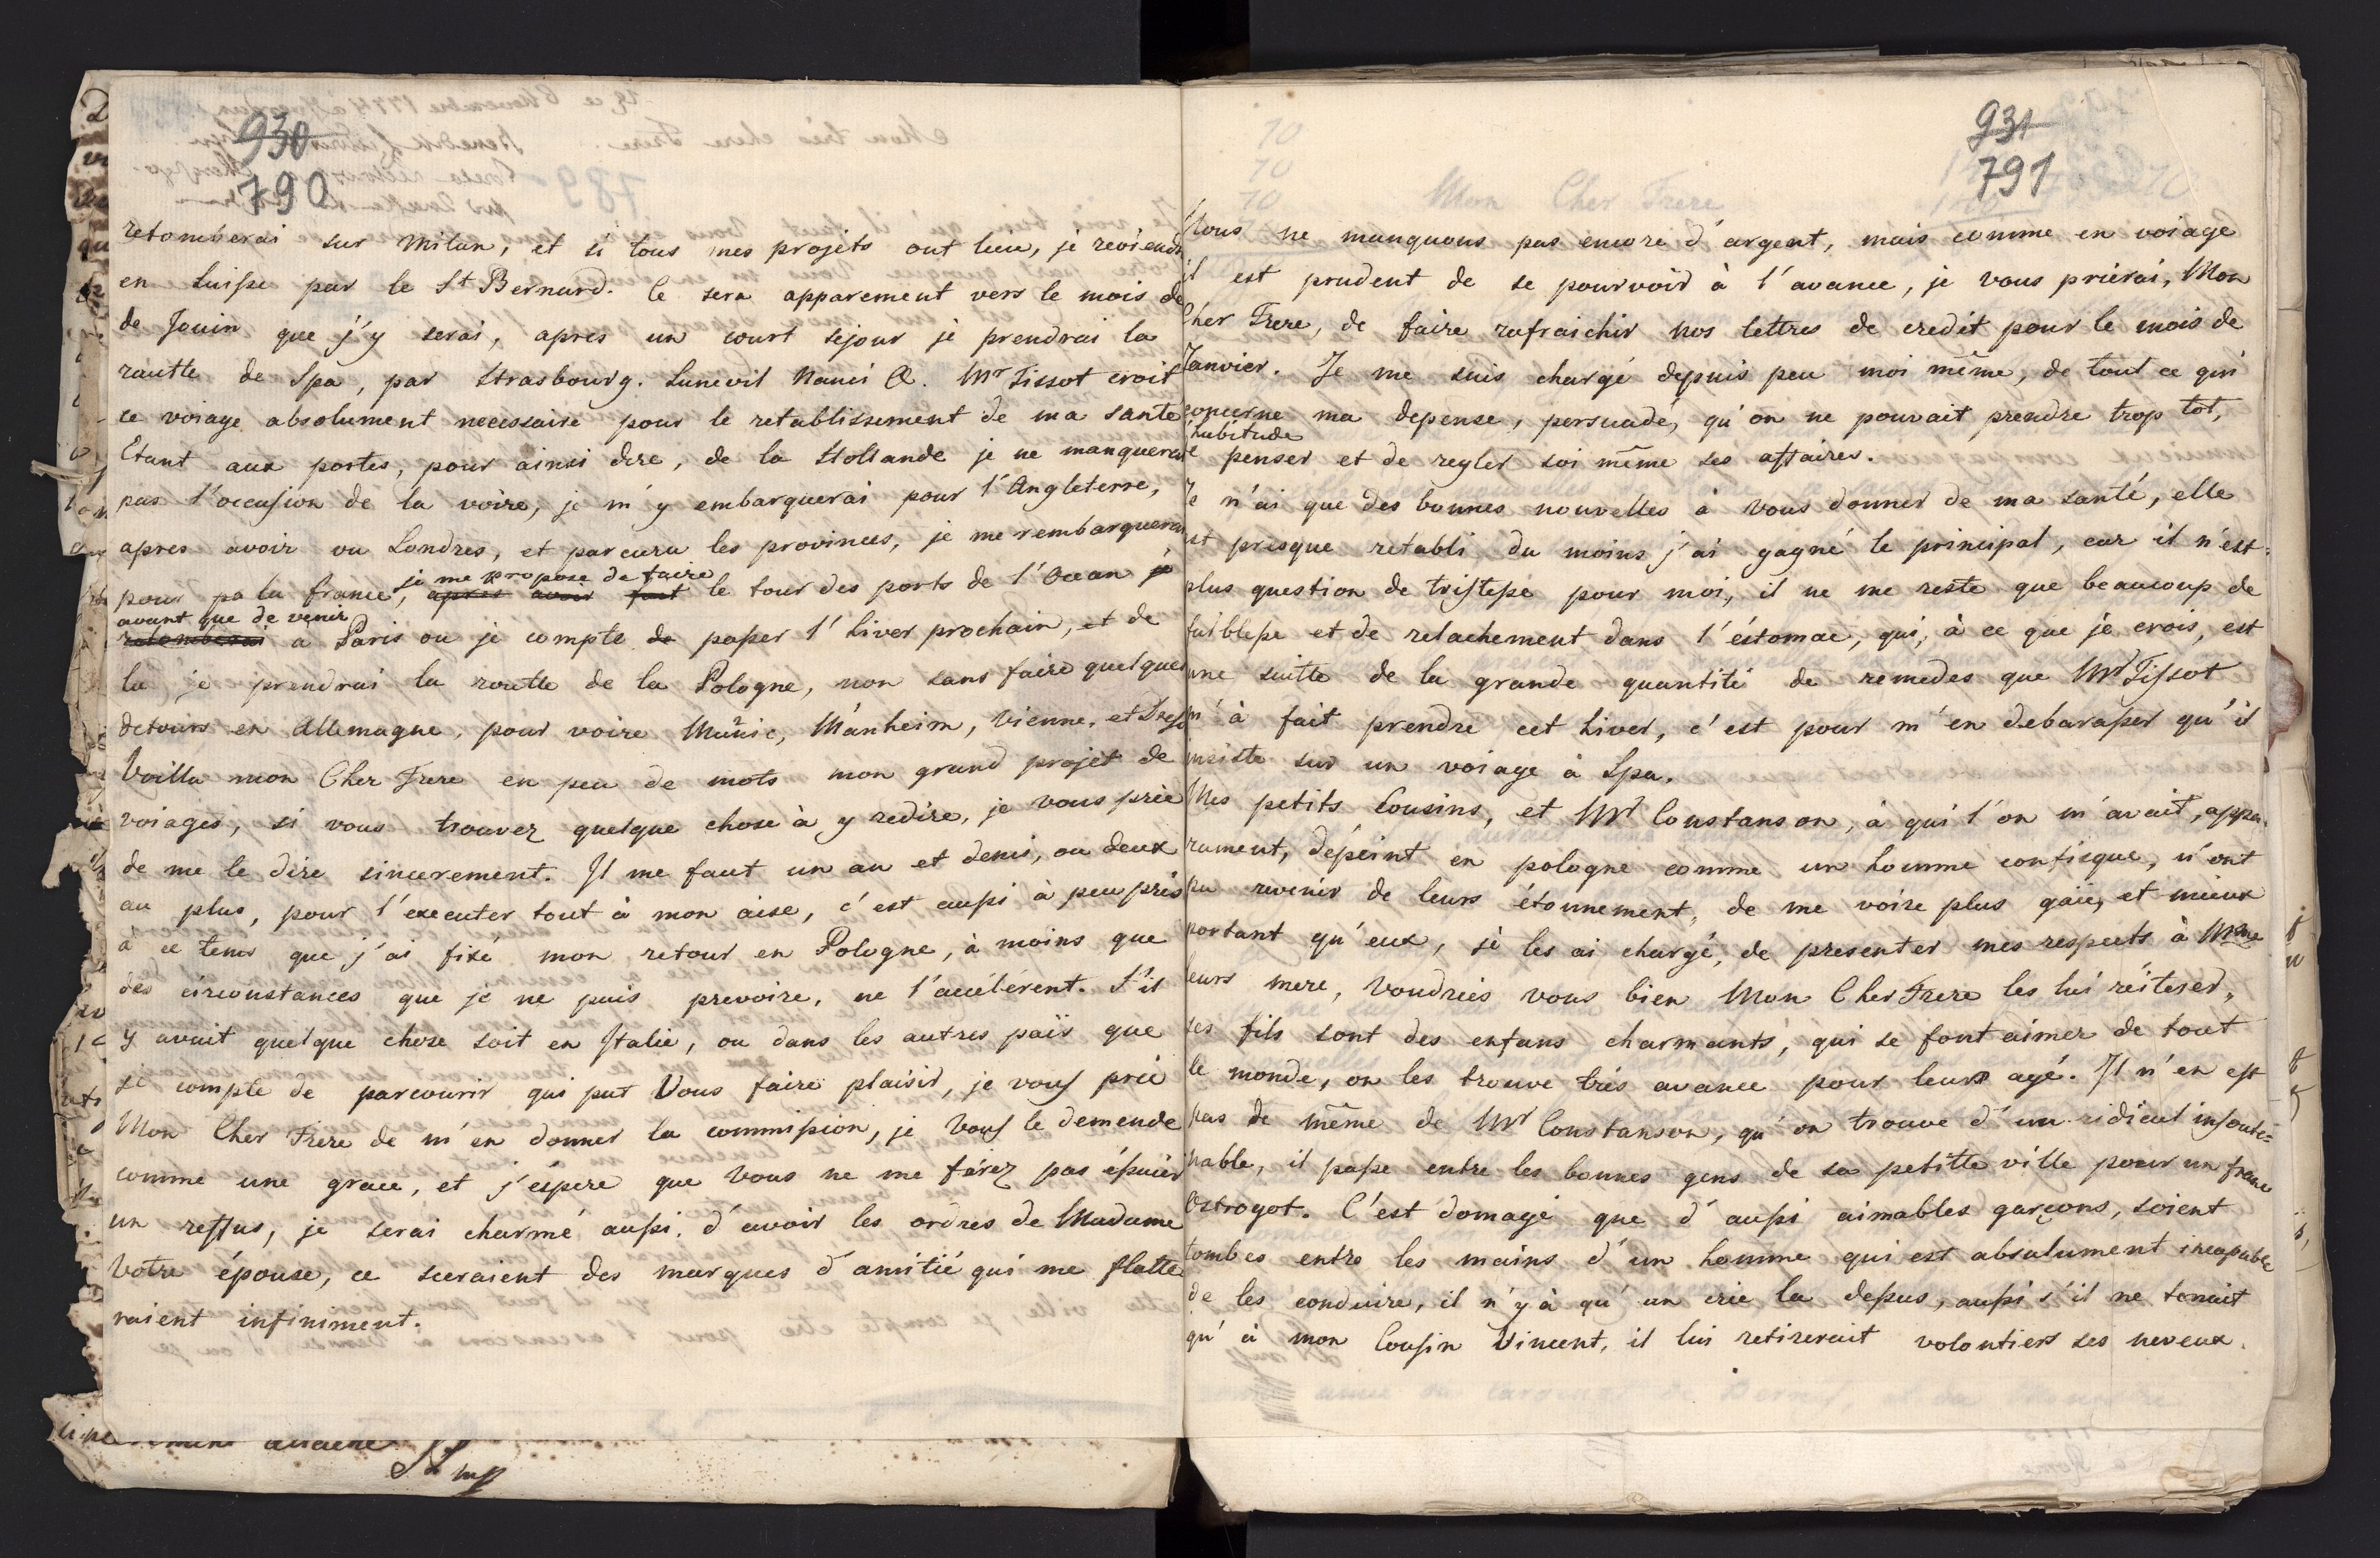 930
790
retomberai sur Milan, et si tous mes projets ont lieu, je reviend
en Suisse par le St Bernard. Ce sera apparement vers le mois de
de Jouin que j'y serai, apres un court sejour je prendrai la
routte de Spa, par Strasbourg. Lunevil Nanci &. Mr Tissot croit
ce voiage absolument necessaire pour le retablissement de ma santé
Etant aux portes, pour ainsi dire, de la Hollande je ne manquerai
pas l'occasion de la voire, je m'y embarquerai pour l'Angleterre,
apres avoir vu Londres, et parcuru les provinces, je me rembarquerai
je me propose de faire
pour pa la france, apres avoir fait le tour des ports de l'Ocean je
avant que de venir
retomberai a Paris ou je compte de passer l'hiver prochain, et de
la je prendrai la routte de la Pologne, non sans faire quelques
detours en Allemagne, pour voire Munic, Manheim, Vienne, et Dresd
Voilla mon Cher Frere en peu de mots mon grand projet de
voiages, si vous trouvez quelque chose à y redire, je vous prie
de me le dire sincerement. Il me faut un an et demi, ou deux
au plus, pour l'executer tout à mon aise, c'est aussi à peu près
à ce tems que j'ai fixé mon retour en Pologne, à moins que
des circonstances que je ne puis prevoire, ne l'accélérent. S'il
y avait quelque chose soit en Italie, ou dans les autres païs que
je compte de parcourir qui put Vous faire plaisir, je vous prie
Mon Cher Frere de m'en donner la commission, je Vous le demende
comme une grace, et j'éspere que Vous ne me férez pas épuier
un reffus, je serai charmé aussi d'avoir les ordres de Madame
Votre épouse, ce sceraient des marques d'amitié qui me flatte
raient infiniment.
931
791
Mon Cher Frere
Nous ne manquons pas encore d'argent, mais comme en voiage
il est prudent de se pourvoir à l'avance, je vous prierai, Mon
Cher Frere, de faire rafraichir nos lettres de credit pour le mois de
Janvier. Je me suis chargé depuis peu moi même, de tout ce qui
concerne ma depense, persuadé, qu'on ne pouvait prendre trop tot,
l'habitude
de penser et de regler soi même ses affaires.
Je n'ai que des bonnes nouvelles à vous donner de ma santé, elle
est presque retabli du moins j'ai gagné le principal, car il n'est
plus question de tristesse pour moi, il ne me reste que beaucoup de
faiblesse et de relachement dans l'éstomac, qui, à ce que je crois, est
une suitte de la grande quantité de remedes que Mr Tissot
m'à fait prendre cet hiver, c'est pour m'en debarasser qu'il
insiste sur un voiage à Spa.
Mes petits Cousins, et Mr Constanson, à qui l'on m'avait, appa-
rament, dépeint en pologne comme un homme confisque, n'ont
pu revenir de leurs étonnement, de me voire plus gaïe, et mieux
portant qu'eux, je les ai chargé, de presenter mes respects à Mme
leurs mere, Voudriés vous bien Mon Cher Frere les lui réiterer,
ses fils sont des enfans charmants, qui se font aimer de tout
le monde, on les trouve trés avance pour leurs agé. Il n'en est
pas de même de Mr Constanson, qu'on trouve d'un ridicul insoute-
nable, il passe entre les bonnes gens de sa petitte ville pour un franc
Ostrogot. C'est domage que d'aussi aimables garçons, soient
tombes entre les mains d'un homme qui est absolument incapable
de les conduire, il n'y à qu'un crie la dessus, aussi s'il ne tenait
qu'à mon Cousin Vincent, il lui retirerait volontiers ses neveux.